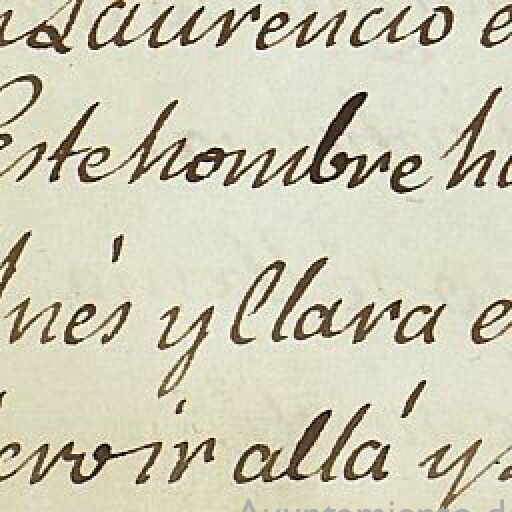 Laurencio e
Este hombre ha
Inés y Clara e
ero ir allá y
Ayuntamiento d